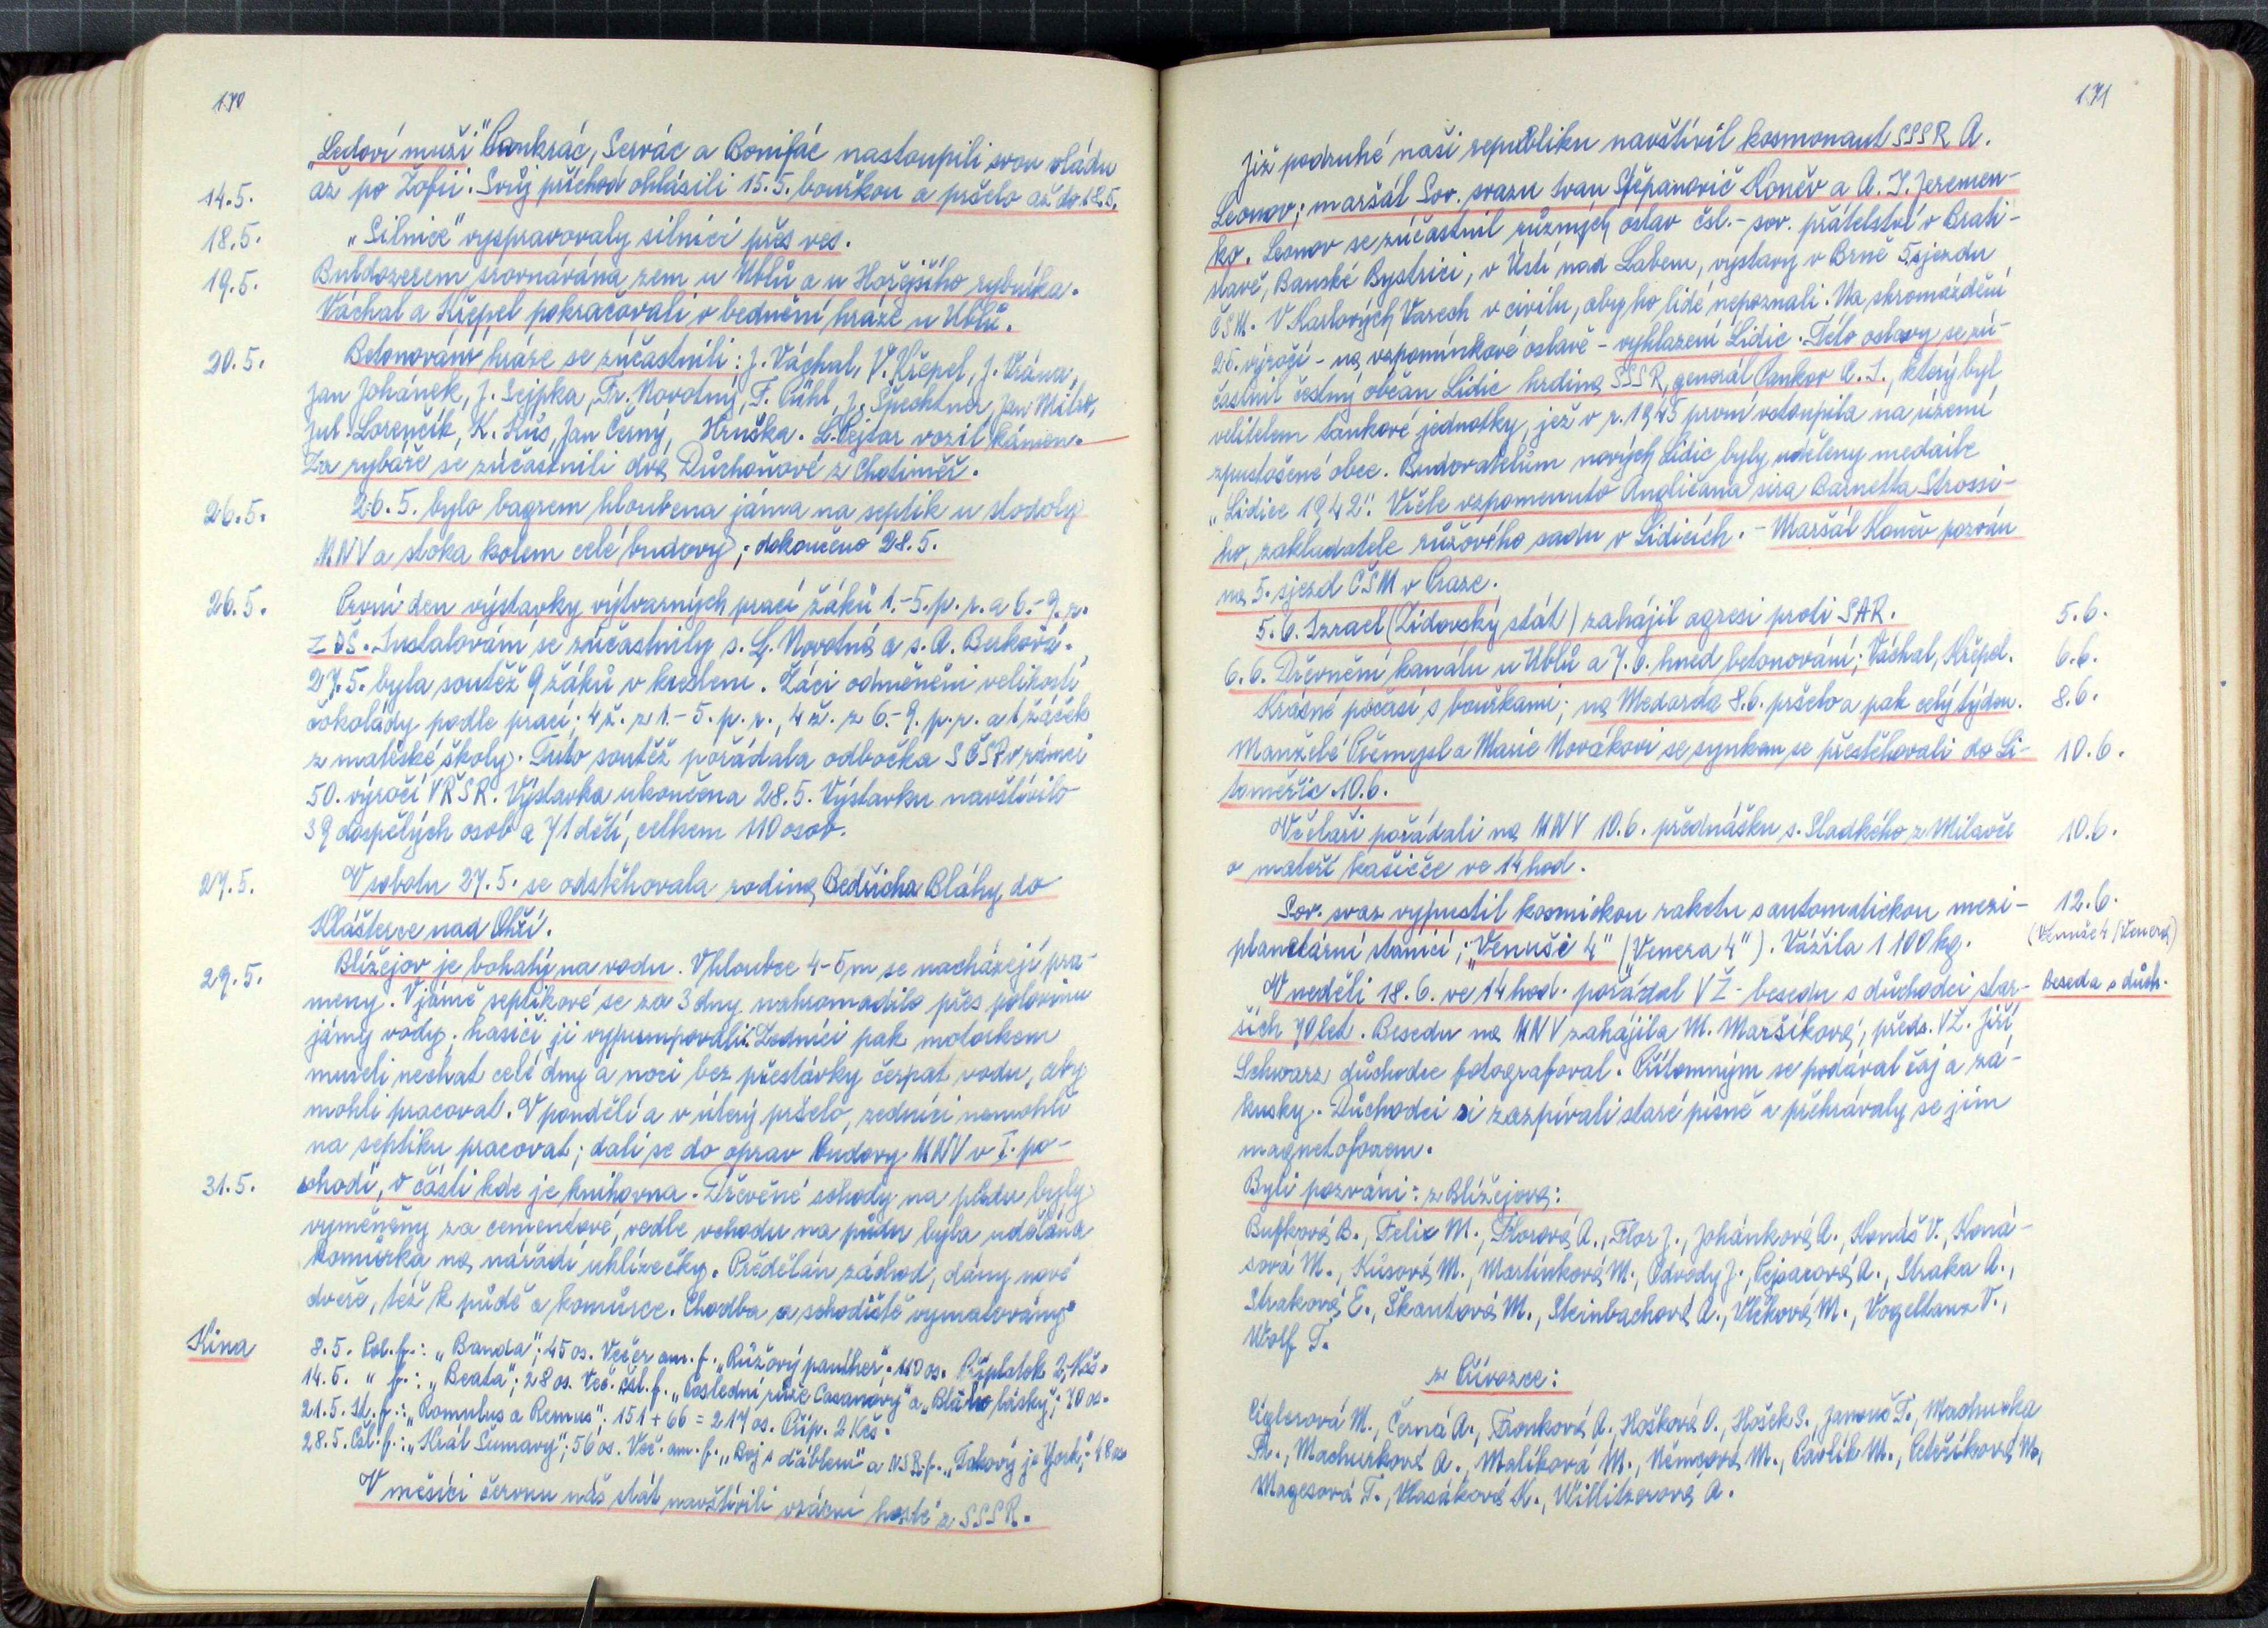 170
„Ledoví muži" Pankrác, Servác a Bonifác nastoupili svou vládu
14.5. až po Žofii. Svůj příchod ohlásili 15.5. bouřkou a pršelo až do 18.5.
18.5. „Silnice" vyspravovaly silnici přes ves.
19.5. Buldozerem srovnávána zem u Úblů a u Hořejšího rybníka.
Váchal a Křepel pokračovali v bednění hráze u Úblů.
20.5. Betonování hráze se zúčastnili: J. Váchal, V. Křepel, J. Vrána,
Jan Johánek, J. Sejpka, Fr. Novotný, F. Pühl, J. Spechtner, Jan Mitro,
Jul. Lorenčík, K. Kůs, Jan Černý, Hruška. L. Pejsar vozil kámen.
Za rybáře se zúčastnili dva Důchoňové z Chotiměř.
26.5. 26.5. bylo bagrem hloubena jáma na septik u stodoly
MNV a stoka kolem celé budovy; dokončeno 28.5.
26.5. První den výstavky výtvarných prací žáků 1.-5. p. r. a 6.-9. r.
ZDŠ. Instalování se zúčastnily s. L. Novotná a s. A. Berková.
27.5. byla soutěž 9 žáků v kreslení. Žáci odměněni velikostí
čokolády podle prací; 4 ž. z 1.-5. p. r., 4 ž. z 6.-9. p. r. a 1 žáček
z mateřské školy. Tuto soutěž pořádala odbočka SČSP v rámci
50. výročí VŘSR. Výstavka ukončena 28.5. Výstavku navštívilo
39 dospělých osob a 71 dětí, celkem 110 osob.
27.5. V sobotu 27.5. se odstěhovala rodina Bedřicha Bláhy do
Klášterce nad Ohří.
29.5. Blížejov je bohatý na vodu. V hloubce 4-5m se nacházejí pra-
meny. V jámě septikové se za 3 dny nahromadilo přes polovinu
jámy vody; hasiči ji vypumpovali. Zedníci pak motorkem
museli nechat celé dny a noci bez přestávky čerpat vodu, aby
mohli pracovat. V pondělí a v úterý pršelo, zedníci nemohli
na septiku pracovat; dali se do oprav budovy MNV v I. po-
31.5. schodí, v části kde je knihovna. Dřevěné schody na půdu byly
vyměněny za cementové, vedle vchodu na půdu byla udělána
komůrka na nářadí uklízečky. Předělán záchod, dány nové
dveře, též k půdě a komůrce. Chodba a schodiště vymalovány.
Kina 8.5. Pol. f.: „Banda"; 45 os. Večer am. f. „Růžový panther". 110 os. Příplatek 2,-Kčs.
14.5. " f.: „Beata"; 28 os. Več. čsl. f. „Poslední růže Casanovy" a „Bláto lásky"; 70 os.
21.5. It. f.: „Romulus a Remus". 151 + 66 = 217 os. Příp. 2 Kčs.
28.5. Čsl. f.: „Král Šumavy"; 56 os. Več. am. f. „Boj s ďáblem" a NSR f. „Takový je York;" 48 os
V měsíci červnu náš stát navštívili vzácní hosté z SSSR.
171
Již podruhé naši republiku navštívil kosmonaut SSSR A.
Leonov; maršál Sov. svazu Ivan Stěpanovič Koněv a A. I. Jeremen-
ko. Leonov se zúčastnil různých oslav čsl.-sov. přátelství v Brati-
slavě, Banské Bystrici, v Ústí nad Labem, výstavy v Brně 5. sjezdu
ČSM. V Karlových Varech v civilu, aby ho lidé nepoznali. Na shromáždění
25. výročí - na vzpomínkové oslavě - vyhlazení Lidic. Této oslavy se zú-
častnil čestný občan Lidic hrdina SSSR, generál Pankov A. I., který byl
velitelem tankové jednotky, jež v r. 1945 první vstoupila na území
zpustošené obce. Budovatelům nových Lidic byly uděleny medaile
„Lidice 1942". Vřele vzpomenuto Angličana sira Barnetta Strossi-
ho, zakladatele růžového sadu v Lidicích. - Maršál Koněv pozván
na 5. sjezd ČSM v Praze.
5.6. Izrael (Židovský stát) zahájil agresi proti SAR. 5.6.
6.6. Dřevnění kanálu u Úblů a 7.6. hned betonování; Váchal, Křepel. 6.6.
Krásné počasí s bouřkami; na Medarda 8.6. pršelo a pak celý týden. 8.6.
Manželé Přemysl a Marie Novákovi se synkem se přestěhovali do Li- 10.6.
toměřic 10.6.
Včelaři pořádali na MNV 10.6. přednášku s. Sladkého z Milavče 10.6.
o mateří kašičce ve 14 hod.
Sov. svaz vypustil kosmickou raketu s automatickou mezi- 12.6.
planetární stanicí; „Venuší 4" („Venera 4"). Vážila 1 100 kg. (Venuše 4 (Venera)
V neděli 18.6. ve 14 hod. pořádal VŽ - besedu s důchodci star- Beseda s důch.
ších 70 let. Besedu na MNV zahájila M. Maršíková, předs. VŽ. Jiří
Schwarz důchodce fotografoval. Přítomným se podával čaj a zá-
kusky. Důchodci si zazpívali staré písně a přehrávaly se jim
magnetofonem.
Byli pozváni: z Blížejova:
Bufková B., Felix M., Florová A., Flor J., Johánková A., Konáš V., Koná-
šová M., Kůsová M., Martínková M., Odvody J., Pejsarová A., Straka A.,
Straková E., Škantová M., Steinbachová A., Vlčková M., Vogeltanz V.,
Wolf T.
z Přívozce:
Ciglerová M., Černá A., Franková A., Hošková O., Hošek S., Janouš T., Machurka
Fr., Machurková A., Malíková M., Němcová M., Pavlík M., Petříková M.,
Magesová T., Vlasáková K., Willitzerová A.